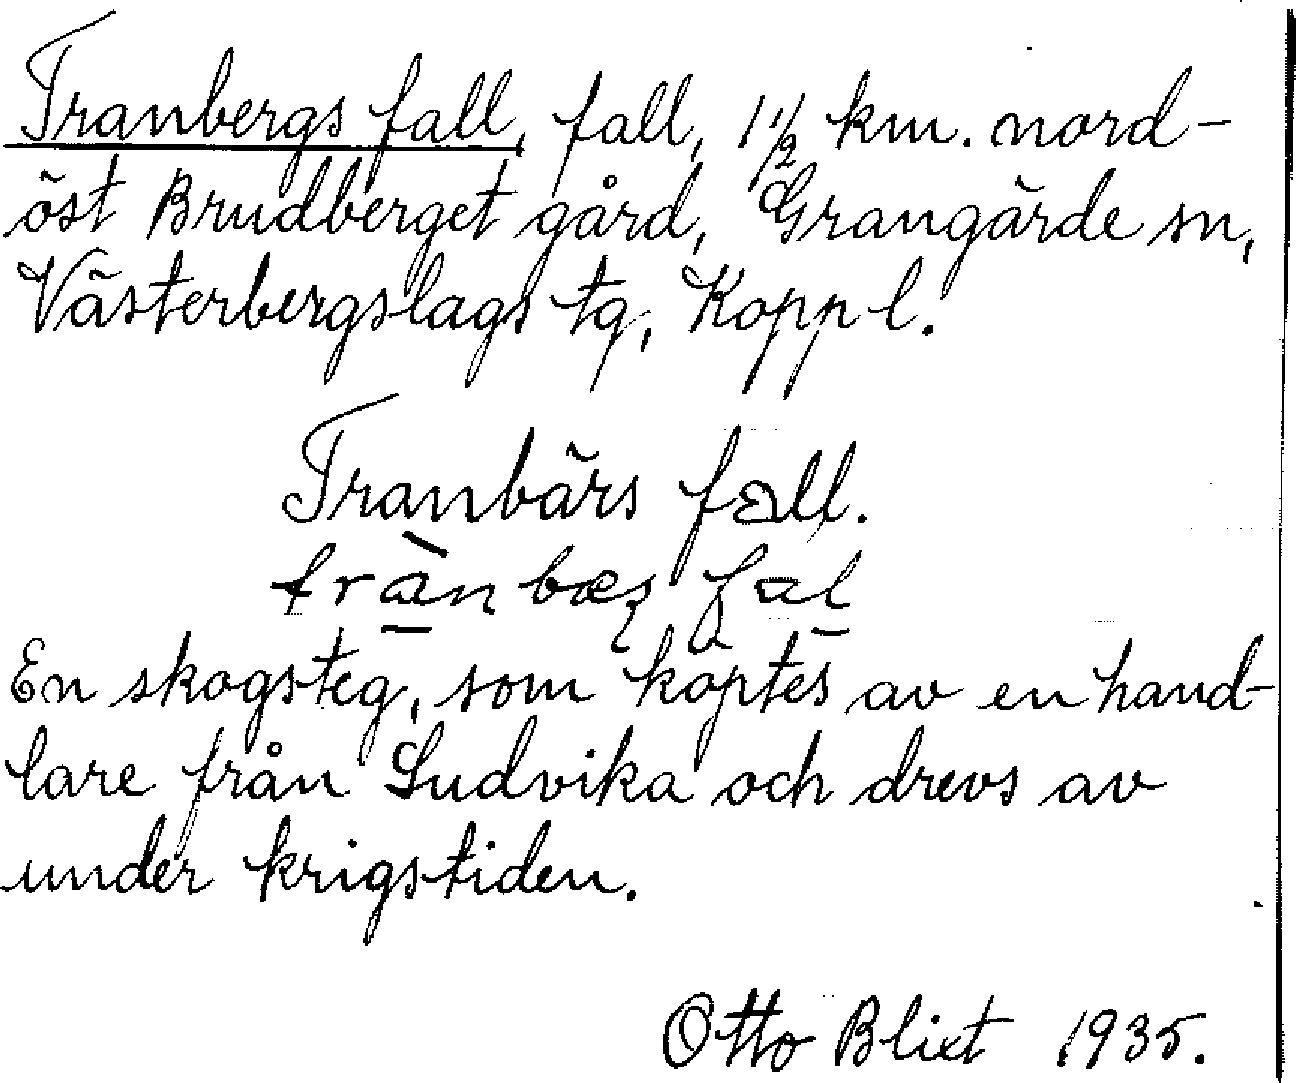 Tranbergs fall, fall, 1 1/2 km. nord-
öst Brudberget gård, Grangärde sn,
Västerbergslags tg, Kopp l.
Tranbärs fall.
En skogsteg, som köptes av en hand-
lare från Ludvika och drevs av
under krigstiden.
Otto Blixt 1935.